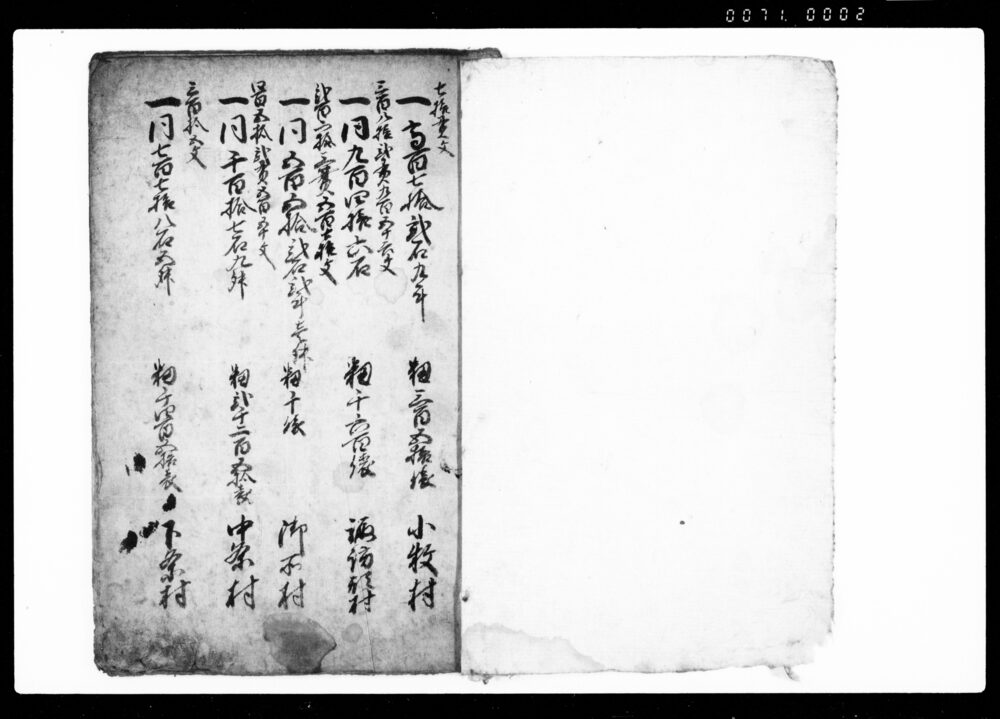 0071. 0002
七拾貫文
一 高百七拾弐石九斗 籾三百五拾俵 小牧村
三百八拾弐貫九百五十六文
一 同 九百四拾六石 籾千六百俵 諏訪形村
弐百六拾三貫八百七拾文
一 同 五百五拾弐石弐斗壱升 籾千俵 御所村
四百五拾弐貫五百五十文
一 同 千百拾七石九升 籾弐千二百五拾俵 中条村
三百拾五文
一 同 七百七拾八石五升 籾千四百五拾俵 下条村